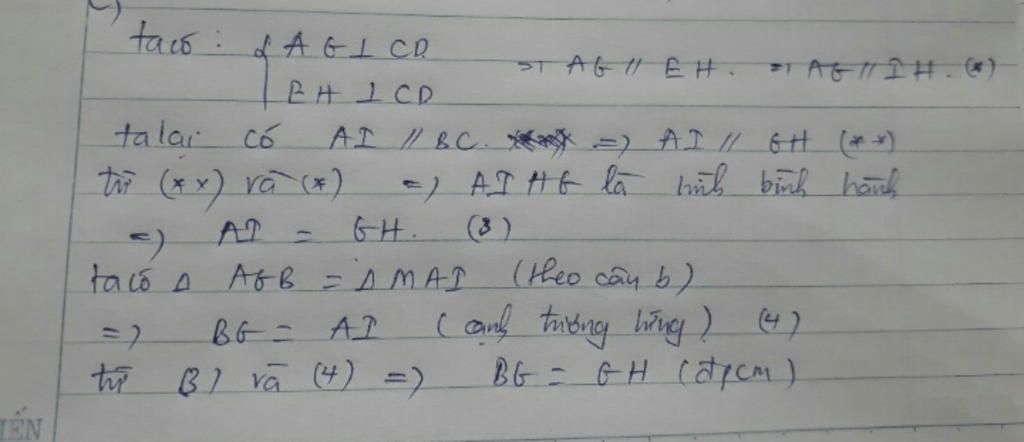 c)
ta có : { AG ⊥ CD => AG // EH. => AG // IH. (*)
EH ⊥ CD
ta lại có AI // BC. => AI // GH (**)
từ (**) và (*) => AIHG là hình bình hành
=> AI = GH. (3)
ta có Δ AGB = Δ MAI (theo câu b)
=> BG = AI (cạnh tương ứng) (4)
từ (3) và (4) => BG = GH (đpcm)
IẾN